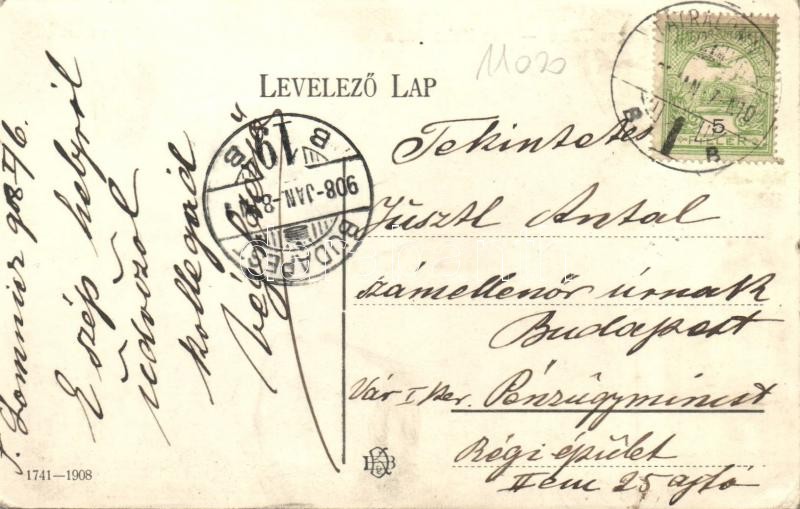 11020
LEVELEZŐ LAP
T. Lomnicz 908 I/6.
E szép helyről
üdvözöl
kollegád
5
BUDAPEST
908-JAN.-8
B
B
19
Tekintetes
Jüsztl Antal
számellenőr úrnak
Budapest
Vár I ker. Pénzügyminist
Régi épület
II em 25 ajtó
1741—1908